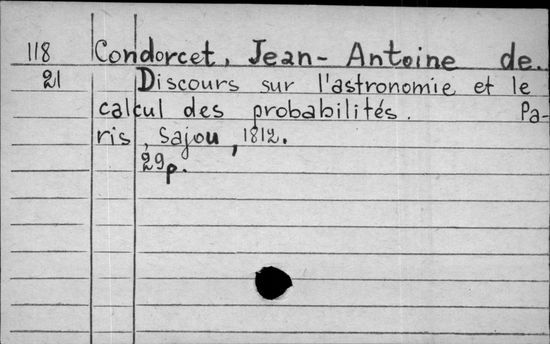 118 Condorcet, Jean-Antoine de.
21 Discours sur l'astronomie et le
calcul des probabilités. Pa-
ris, Sajou, 1812.
29p.